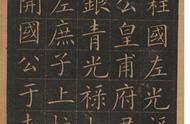 柱國左光祿
公皇甫府君
銀青光祿大
左庶子上柱
開國公于志